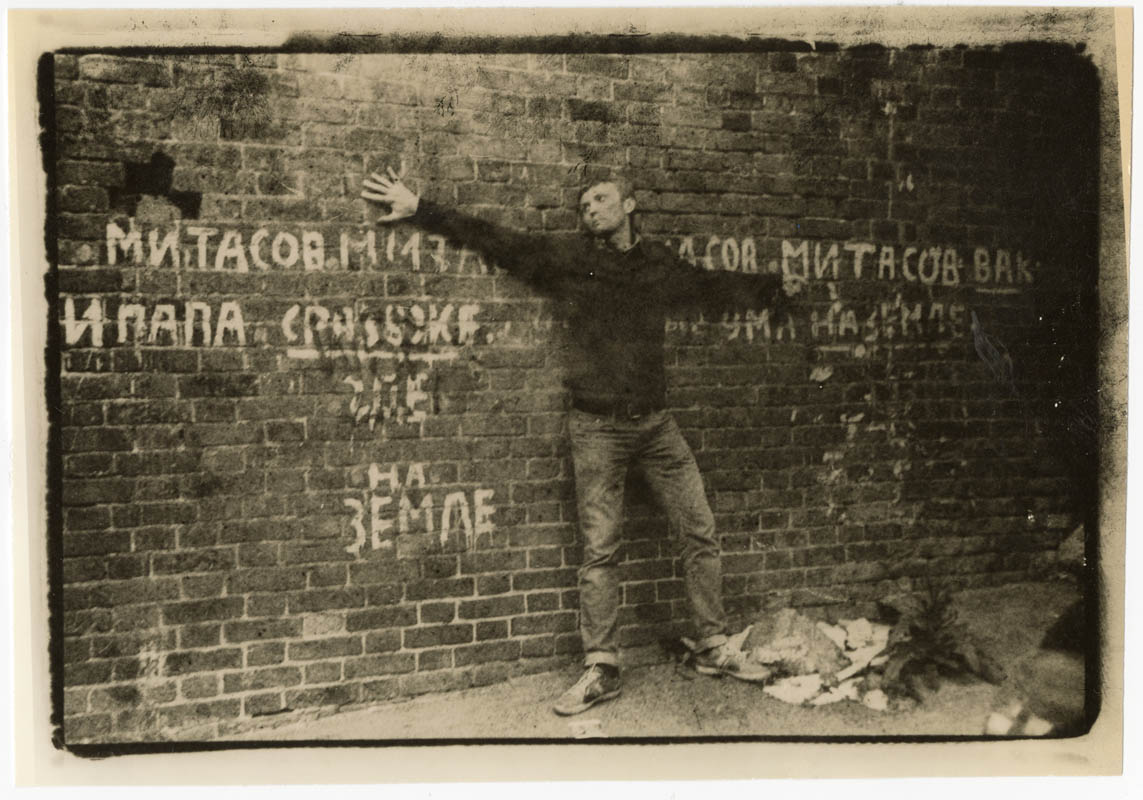 МИТАСОВ. МИТА АСОВ. МИТАСОВ ВАК
И ПАПА. УМА НА ЗЕМЛЕ
НА
ЗЕМЛЕ